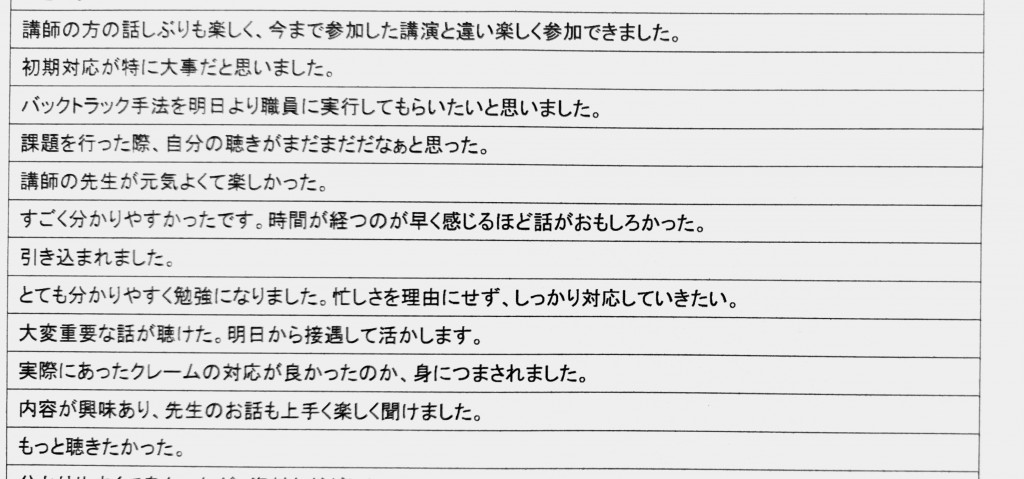 講師の方の話しぶりも楽しく、今まで参加した講演と違い楽しく参加できました。
初期対応が特に大事だと思いました。
バックトラック手法を明日より職員に実行してもらいたいと思いました。
課題を行った際、自分の聴きがまだまだだなぁと思った。
講師の先生が元気よくて楽しかった。
すごく分かりやすかったです。時間が経つのが早く感じるほど話がおもしろかった。
引き込まれました。
とても分かりやすく勉強になりました。忙しさを理由にせず、しっかり対応していきたい。
大変重要な話が聴けた。明日から接遇して活かします。
実際にあったクレームの対応が良かったのか、身につまされました。
内容が興味あり、先生のお話も上手く楽しく聞けました。
もっと聴きたかった。